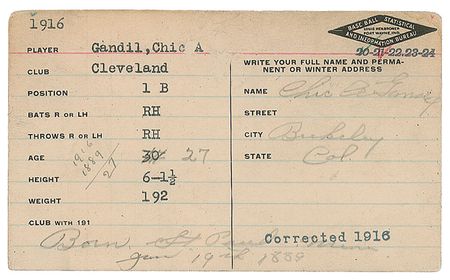 1916
BASE BALL STATISTICAL
LOUIS HEILBRONER
FORT WAYNE, IND.
AND INFORMATION BUREAU
20-21-22.23-24
PLAYER Gandil,Chic A
CLUB Cleveland
POSITION 1 B
BATS R OR LH RH
THROWS R OR LH RH
AGE 30 27
HEIGHT 6-1½
WEIGHT 192
CLUB WITH 191
1916
1889
27
WRITE YOUR FULL NAME AND PERMA-
NENT OR WINTER ADDRESS
NAME Chic A Gandil
STREET
CITY Berkeley
STATE Cal
Corrected 1916
Born St Paul Minn
Jan 19th 1889